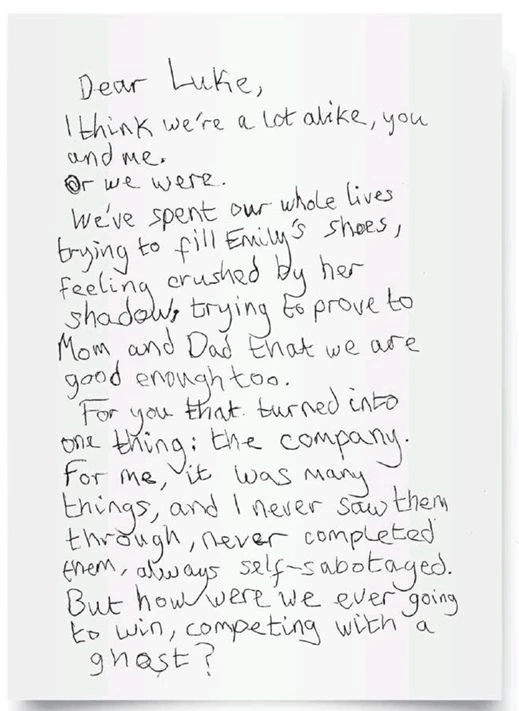 Dear Luke,
I think we're a lot alike, you
and me.
Or we were.
We've spent our whole lives
trying to fill Emily's shoes,
feeling crushed by her
shadow, trying to prove to
Mom and Dad that we are
good enough too.
For you that turned into
one thing: the company.
For me, it was many
things, and I never saw them
through, never completed
them, always self-sabotaged.
But how were we ever going
to win, competing with a
ghost?